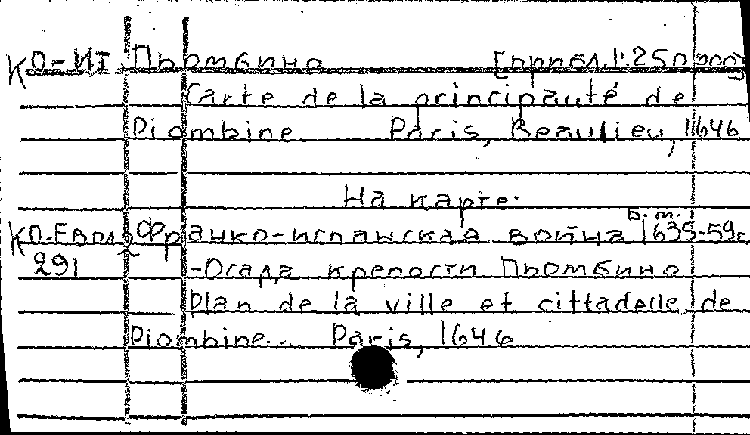 КО-ИТ Пьомбино [прибл.1:250 000]
Carte de la principauté de
Piombine Paris, Beaulieu, 1646
На карте:
Б.м.
КО.Евр Франко-испанская война 1635-59г.
291 -Осада крепости Пьомбино
Plan de la ville et cittadelle de
Piombine. Paris, 1646